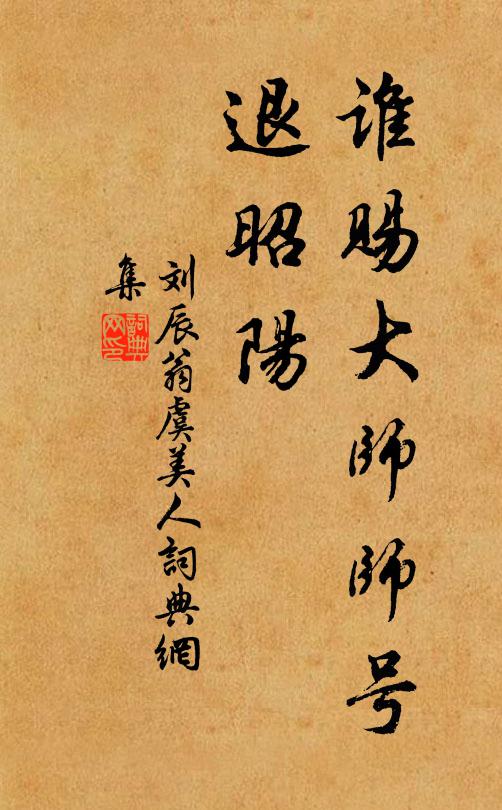 誰賜大師師号
退昭陽
刘辰翁虞美人詞典網
集
詞典网印